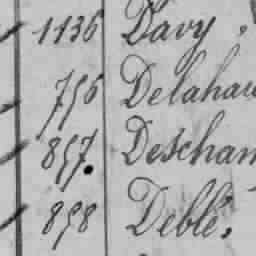 1136 Davy.
756 Delahau
857. Descham
858 Deblé.